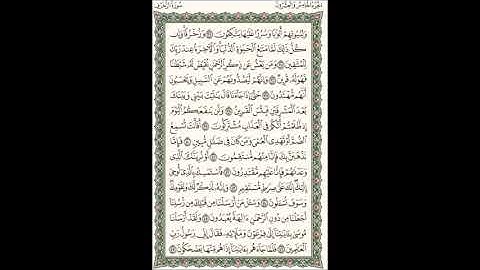 الجزء الخامس والعشرون سورة الزخرف
وَلِبُيُوتِهِمْ أَبْوَٰبًا وَسُرُرًا عَلَيْهَا يَتَّكِـُٔونَ ٣٤ وَزُخْرُفًا وَإِن
كُلُّ ذَٰلِكَ لَمَّا مَتَٰعُ ٱلْحَيَوٰةِ ٱلدُّنْيَا وَٱلْءَاخِرَةُ عِندَ رَبِّكَ
لِلْمُتَّقِينَ ٣٥ وَمَن يَعْشُ عَن ذِكْرِ ٱلرَّحْمَٰنِ نُقَيِّضْ لَهُۥ شَيْطَٰنًا
فَهُوَ لَهُۥ قَرِينٌ ٣٦ وَإِنَّهُمْ لَيَصُدُّونَهُمْ عَنِ ٱلسَّبِيلِ وَيَحْسَبُونَ
أَنَّهُم مُّهْتَدُونَ ٣٧ حَتَّىٰٓ إِذَا جَآءَنَا قَالَ يَٰلَيْتَ بَيْنِى وَبَيْنَكَ
بُعْدَ ٱلْمَشْرِقَيْنِ فَبِئْسَ ٱلْقَرِينُ ٣٨ وَلَن يَنفَعَكُمُ ٱلْيَوْمَ
إِذ ظَّلَمْتُمْ أَنَّكُمْ فِى ٱلْعَذَابِ مُشْتَرِكُونَ ٣٩ أَفَأَنتَ تُسْمِعُ
ٱلصُّمَّ أَوْ تَهْدِى ٱلْعُمْىَ وَمَن كَانَ فِى ضَلَٰلٍ مُّبِينٍ ٤٠ فَإِمَّا
نَذْهَبَنَّ بِكَ فَإِنَّا مِنْهُم مُّنتَقِمُونَ ٤١ أَوْ نُرِيَنَّكَ ٱلَّذِى
وَعَدْنَٰهُمْ فَإِنَّا عَلَيْهِم مُّقْتَدِرُونَ ٤٢ فَٱسْتَمْسِكْ بِٱلَّذِىٓ أُوحِىَ
إِلَيْكَ إِنَّكَ عَلَىٰ صِرَٰطٍ مُّسْتَقِيمٍ ٤٣ وَإِنَّهُۥ لَذِكْرٌ لَّكَ وَلِقَوْمِكَ
وَسَوْفَ تُسْـَٔلُونَ ٤٤ وَسْـَٔلْ مَنْ أَرْسَلْنَا مِن قَبْلِكَ مِن رُّسُلِنَآ
أَجَعَلْنَا مِن دُونِ ٱلرَّحْمَٰنِ ءَالِهَةً يُعْبَدُونَ ٤٥ وَلَقَدْ أَرْسَلْنَا
مُوسَىٰ بِـَٔايَٰتِنَآ إِلَىٰ فِرْعَوْنَ وَمَلَإِيْهِۦ فَقَالَ إِنِّى رَسُولُ رَبِّ
ٱلْعَٰلَمِينَ ٤٦ فَلَمَّا جَآءَهُم بِـَٔايَٰتِنَآ إِذَا هُم مِّنْهَا يَضْحَكُونَ ٤٧